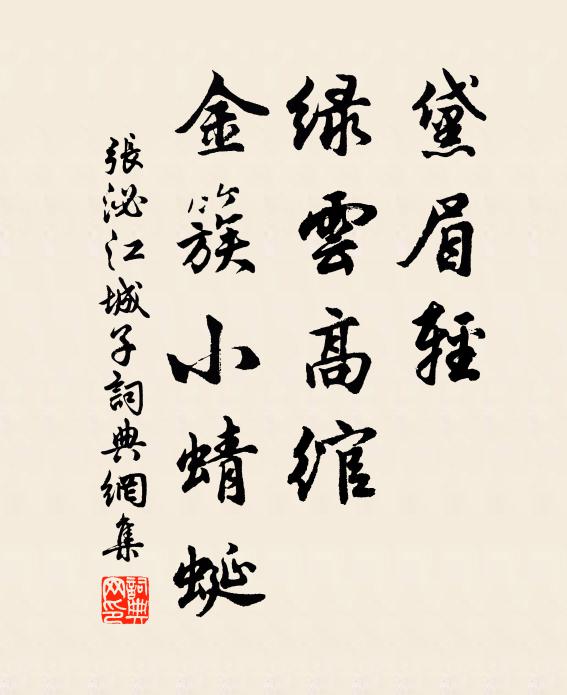 黛眉輕
綠雲高綰
金簇小蜻蜓
張泌江城子詞典網集
詞典網印